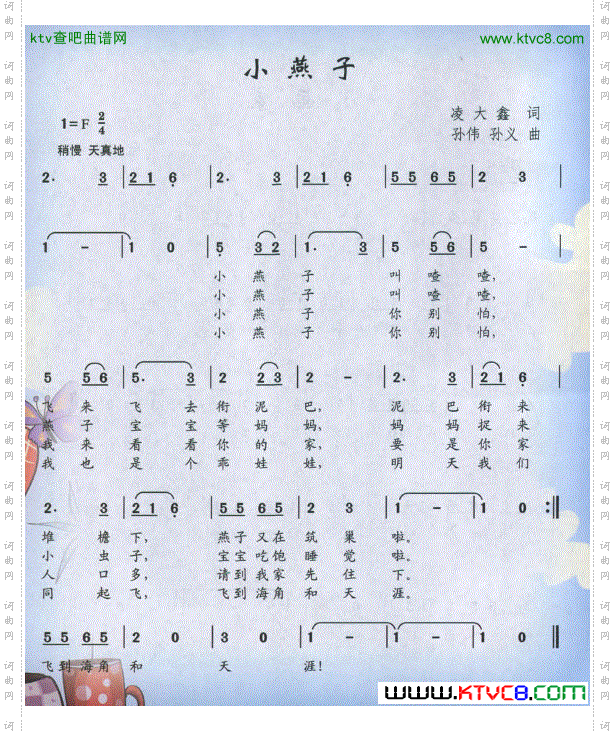 ktv查吧曲谱网 www.ktvc8.com
小燕子
凌大鑫 词
1=F 2/4
孙伟 孙义 曲
稍慢 天真地
2. 3 | 2 1 6 | 2. 3 | 2 1 6 | 5 5 6 5 | 2 3 |
1 - | 1 0 | 5 3 2 | 1. 3 | 5 5 6 | 5 - |
小 燕 子 叫 喳 喳,
小 燕 子 叫 喳 喳,
小 燕 子 你 别 怕,
小 燕 子 你 别 怕,
5 5 6 | 5. 3 | 2 2 3 | 2 - | 2. 3 | 2 1 6 |
飞 来 飞 去 衔 泥 巴, 泥 巴 衔 来
燕 子 宝 宝 等 妈 妈, 妈 妈 捉 来
我 来 看 看 你 的 家, 要 是 你 家
我 也 是 个 乖 娃 娃, 明 天 我 们
2. 3 | 2 1 6 | 5 5 6 5 | 2 3 | 1 - | 1 0 :||
堆 檐 下, 燕子又在 筑 巢 啦。
小 虫 子, 宝宝吃饱 睡 觉 啦。
人 口 多, 请到我家 先 住 下。
同 起 飞, 飞到海角 和 天 涯。
5 5 6 5 | 2 0 | 3 0 | 1 - | 1 - | 1 0 ||
飞到海角 和 天 涯!
www.KTVC8.com